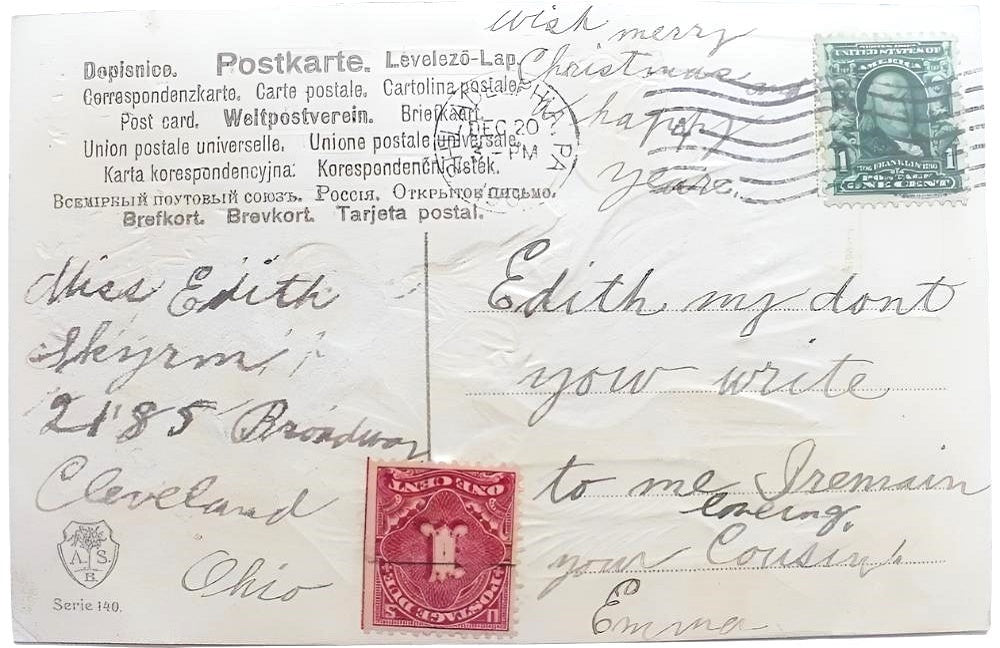 wish merry
Christmas and
happy
year.
Dopisnice. Postkarte. Levelezö-Lap.
Correspondenzkarte. Carte postale. Cartolina postale.
Post card. Weltpostverein. Briefkaart.
Union postale universelle. Unione postale universale.
Karta korespondencyjna. Korespondenčni listek.
Всемірный поутовый союзъ. Россія. Открытое письмо.
Brefkort. Brevkort. Tarjeta postal.
DEC 20
- PM
PA
UNITED STATES OF
AMERICA
1 FRANKLIN 1
POSTAGE
ONE CENT
Miss Edith
Skyrm
2185 Broadway
Cleveland
Ohio
A. S.
B.
Serie 140.
ONE CENT
1
POSTAGE DUE
Edith my dont
yow write
to me I remain
loveing
your Cousin
Emma